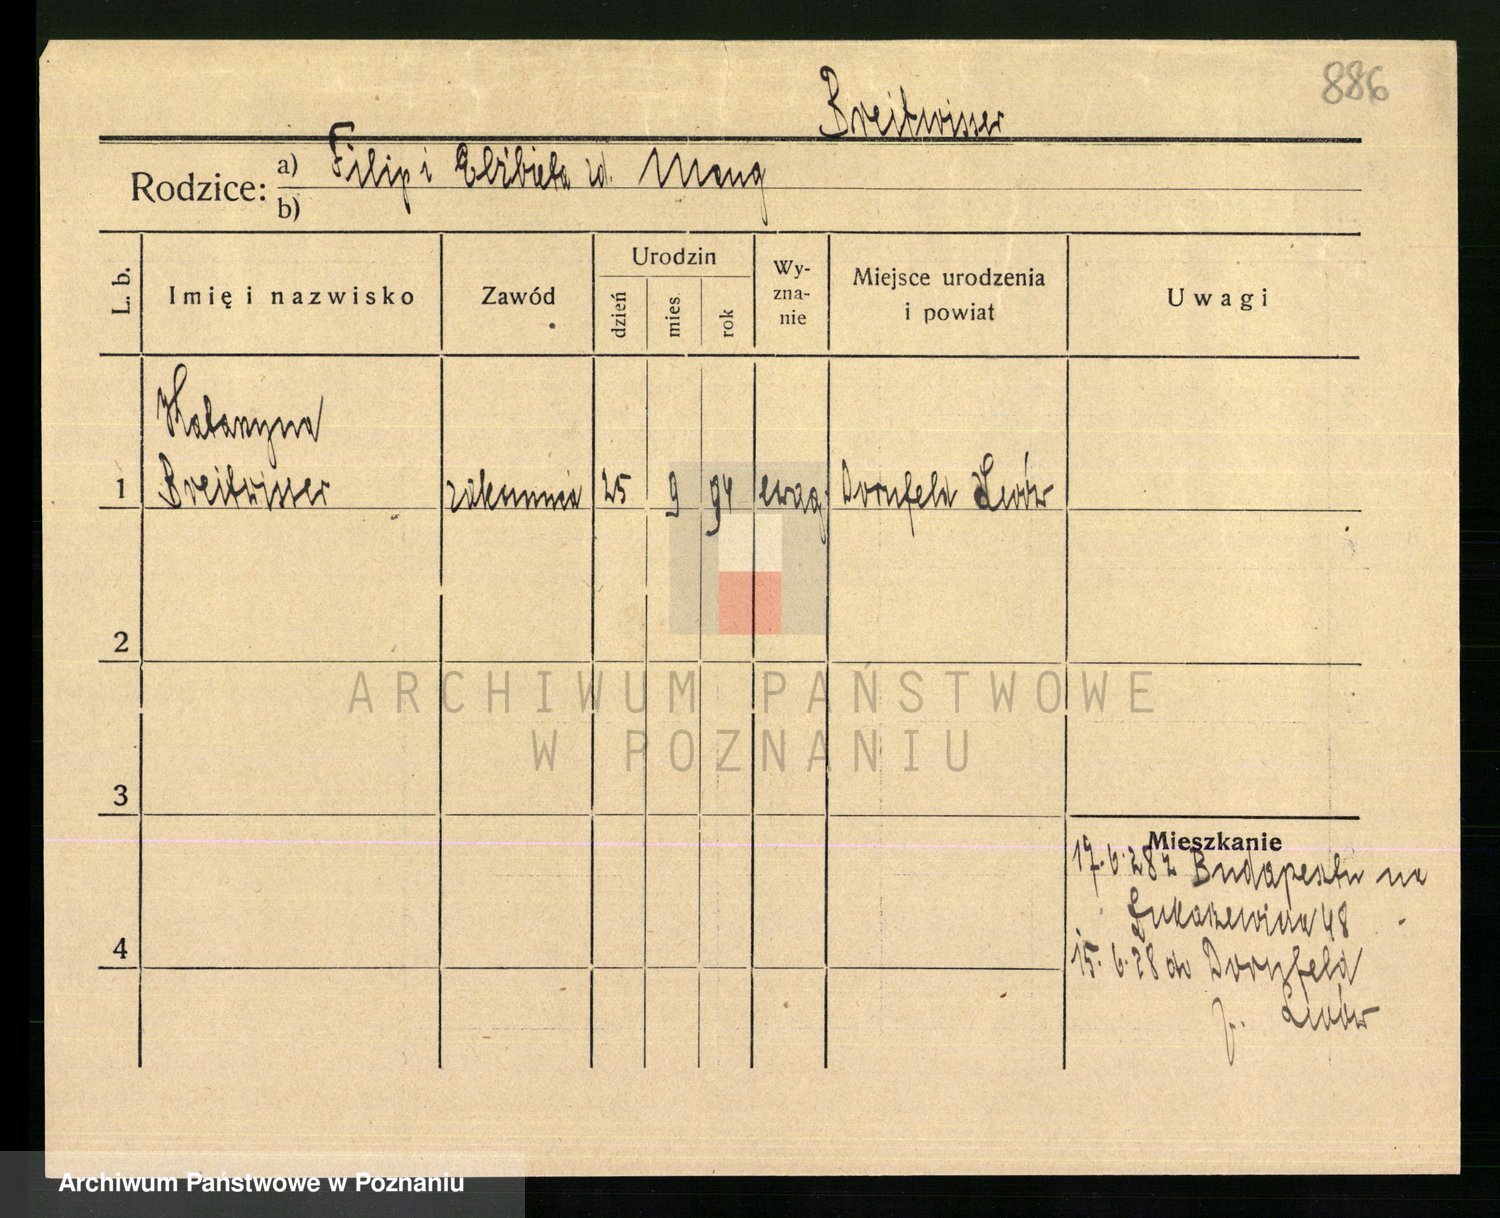 886
Breitwisser
Rodzice: a) Filip i Elżbieta zd. Mang
b)
L. b. Imię i nazwisko Zawód Urodzin dzień mies. rok Wy-zna-nie Miejsce urodzenia i powiat Uwagi
Katarzyna
1 Breitwisser zakonnica 25 9 94 ewag. Dornfeld Lwów
2
ARCHIWUM PAŃSTWOWE
W POZNANIU
3
Mieszkanie
17.6.28 z Budapesztu na
Łukaszewicza 48
4
15.6.28 do Dornfeld
p. Lwów
Archiwum Państwowe w Poznaniu